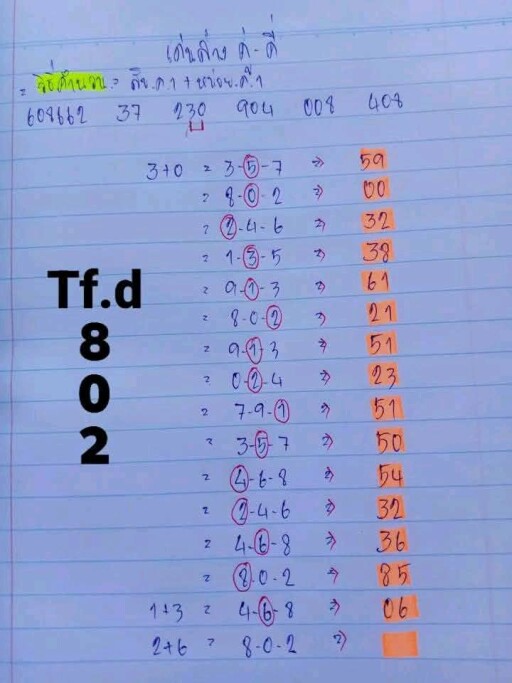 เด่นล่าง คู่-คี่
= วิธีคำนวน = สิบ.ค1 + หน่วย.ค1
608662 37 230 904 008 408
3+0 = 3-5-7 => 59
= 8-0-2 => 00
= 2-4-6 => 32
= 1-3-5 => 38
= 9-1-3 => 61
= 8-0-2 => 21
= 9-1-3 => 51
= 0-2-4 => 23
= 7-9-1 => 51
= 3-5-7 => 50
= 4-6-8 => 54
= 2-4-6 => 32
= 4-6-8 => 36
= 8-0-2 => 85
1+3 = 4-6-8 => 06
2+6 = 8-0-2 =>
Tf.d
8
0
2